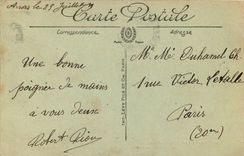 Arras le 25 Juillet
Carte Postale
Correspondance
Adresse
Une bonne
poignée de mains
à vous deux
Robert
Mr Me Duhamel Ch.
1 rue Victor Letalle
Paris
(20em)